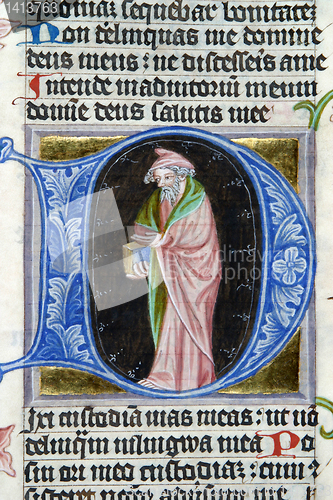 sequebar bonitatez
Non delinquas me domine
deus meus: ne discesseis a me
Intende in adiutoriū meum
domīe deus salutis mee
D
Ixi custodiā uias meas: ut nō
delinqm in lingwa mea Po
sui ori meo custodiaz: cum